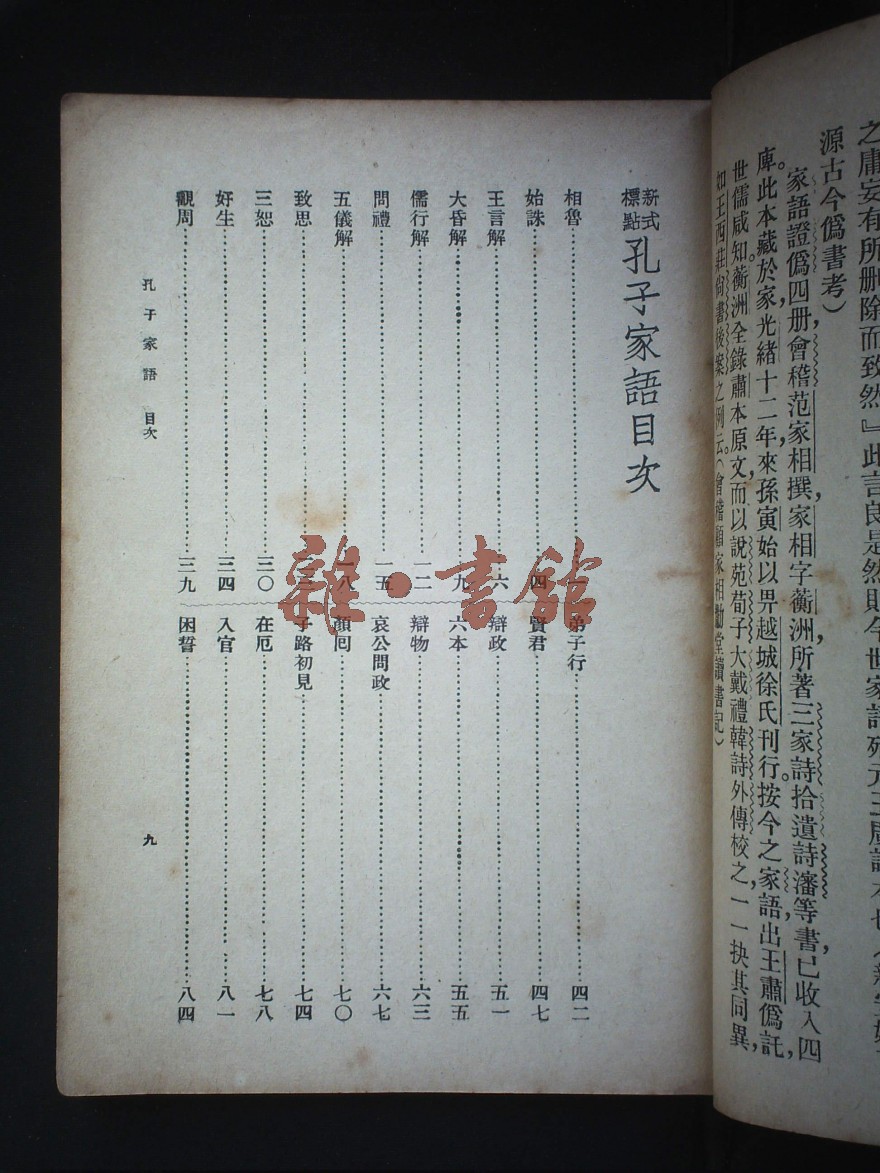 之庸妄有所刪除而致然』此言良是然則今世家語殆元王廣謀本也
源古今僞書考）
家語證僞四册會稽范家相撰家相字蘅洲所著三家詩拾遺詩瀋等書已收入四
庫。此本藏於家光緒十二年來孫寅始以畀越城徐氏刊行。按今之家語出王肅僞託，
世儒咸知。蘅洲全錄肅本原文，而以說苑荀子大戴禮韓詩外傳校之，一一抉其同異，
如王西莊尙書後案之例云。（會稽顧家相勴堂讀書記）
新式標點 孔子家語目次
相魯
始誅 四
王言解 六
大昏解 九
儒行解 一二
問禮 一五
五儀解 一八
致思
三恕 三〇
好生 三四
觀周 三九
弟子行 四二
賢君 四七
辯政 五一
六本 五五
辯物 六三
哀公問政 六七
顏囘 七〇
子路初見 七四
在厄 七八
入官 八一
困誓 八四
孔子家語 目次
九
雜·書館